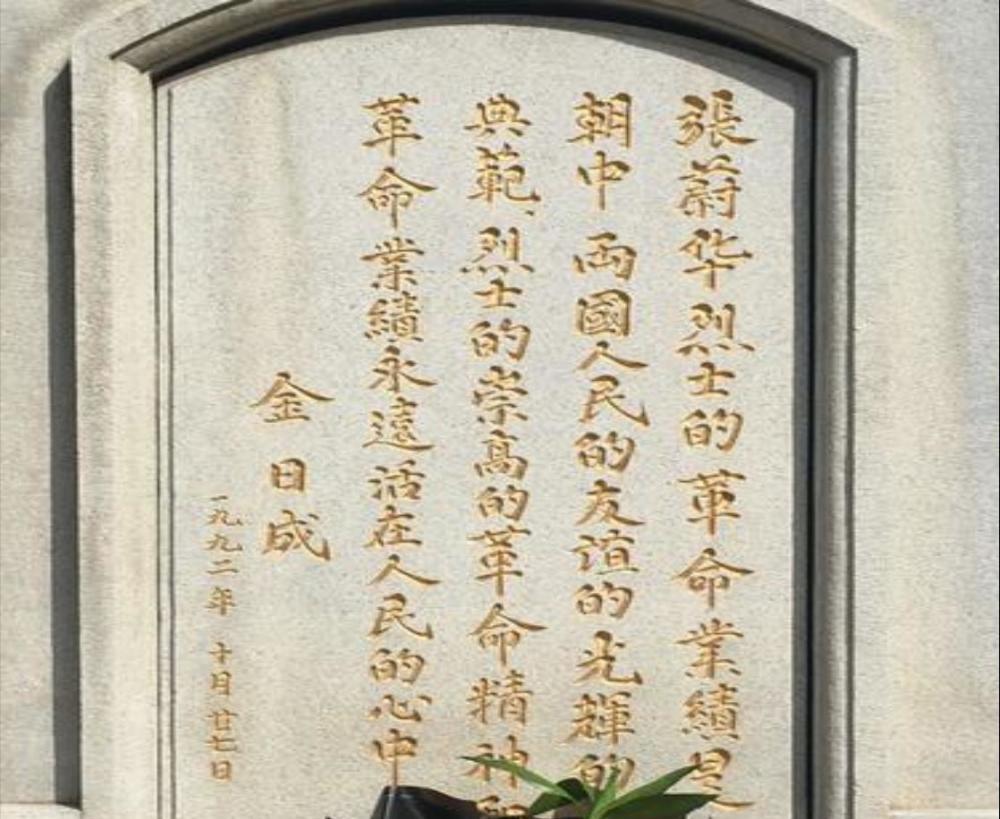 張蔚华烈士的革命業績是
朝中両國人民的友谊的光輝的
典範、烈士的崇高的革命精神和
革命業績永遠活在人民的心中
金日成
一九九二年十月廿七日